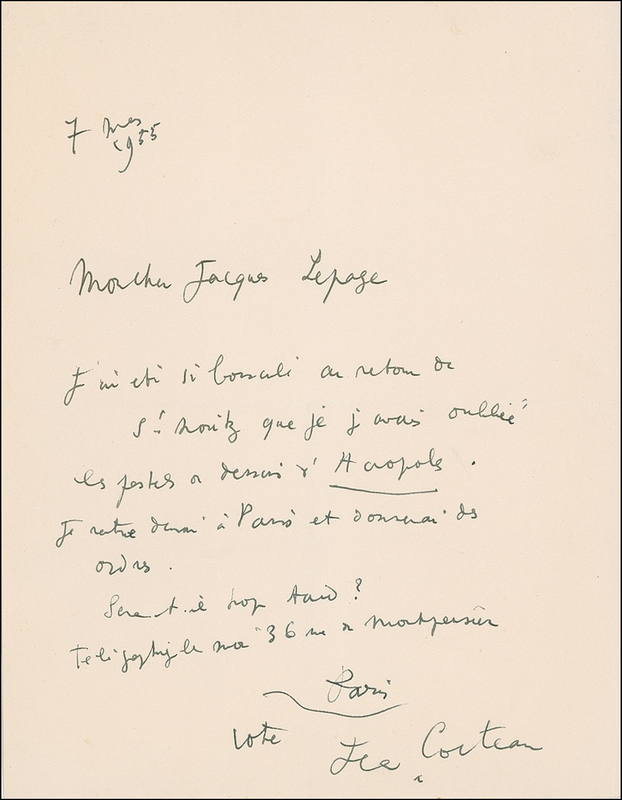 7 mars
1955
Mon cher Jacques Lepage
J'ai été si bousculé au retour de
St Moritz que je j'avais oublié
les pastels de dessins d'Acropole.
Je rentre demain à Paris et donnerai des
ordres.
Sera-t-il trop tard ?
Télégraphiez le moi 36 rue de Montpensier
Paris
Votre
Jean Cocteau